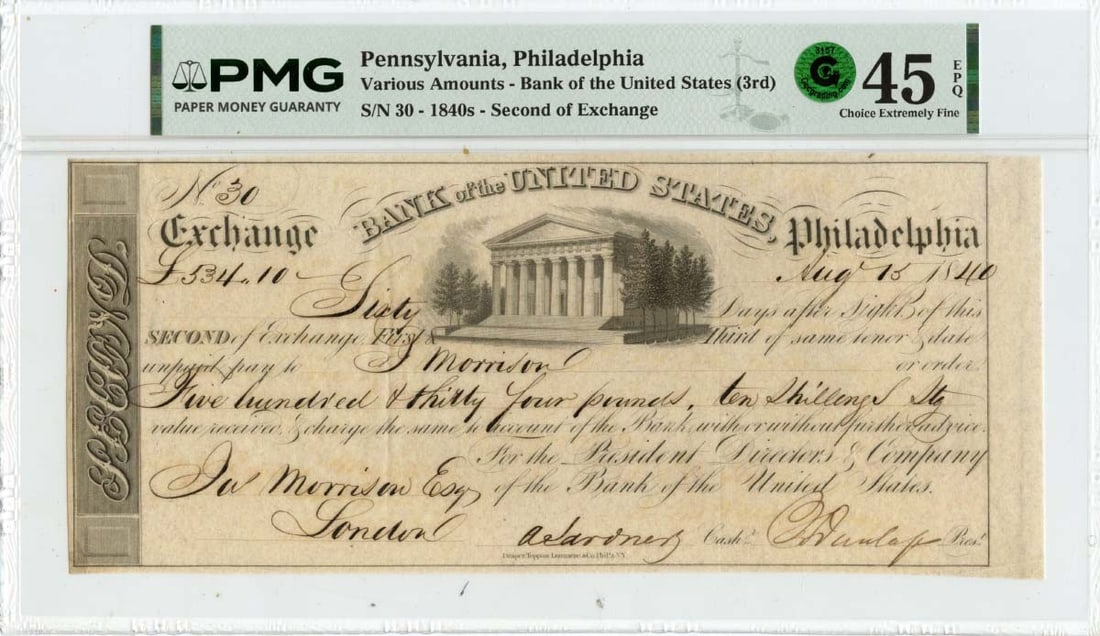 PMG
PAPER MONEY GUARANTY
Pennsylvania, Philadelphia
Various Amounts - Bank of the United States (3rd)
S/N 30 - 1840s - Second of Exchange
45
EPQ
Choice Extremely Fine
No. 30
BANK of the UNITED STATES,
Exchange Philadelphia
£534.. 10 Augt 15 1840
Sixty Days after Sight of this
SECOND of Exchange, First & Third of same tenor & date
unpaid, pay to J Morrison or order
Five hundred & thirty four pounds, ten Shillings Stg
value received, & charge the same to account of the Bank, with or without further advice.
For the President Directors & Company
Morrison Esq of the Bank of the United States.
London Cashr. Presdt.
Draper, Toppan, Longacre & Co. Phila. & N.Y.